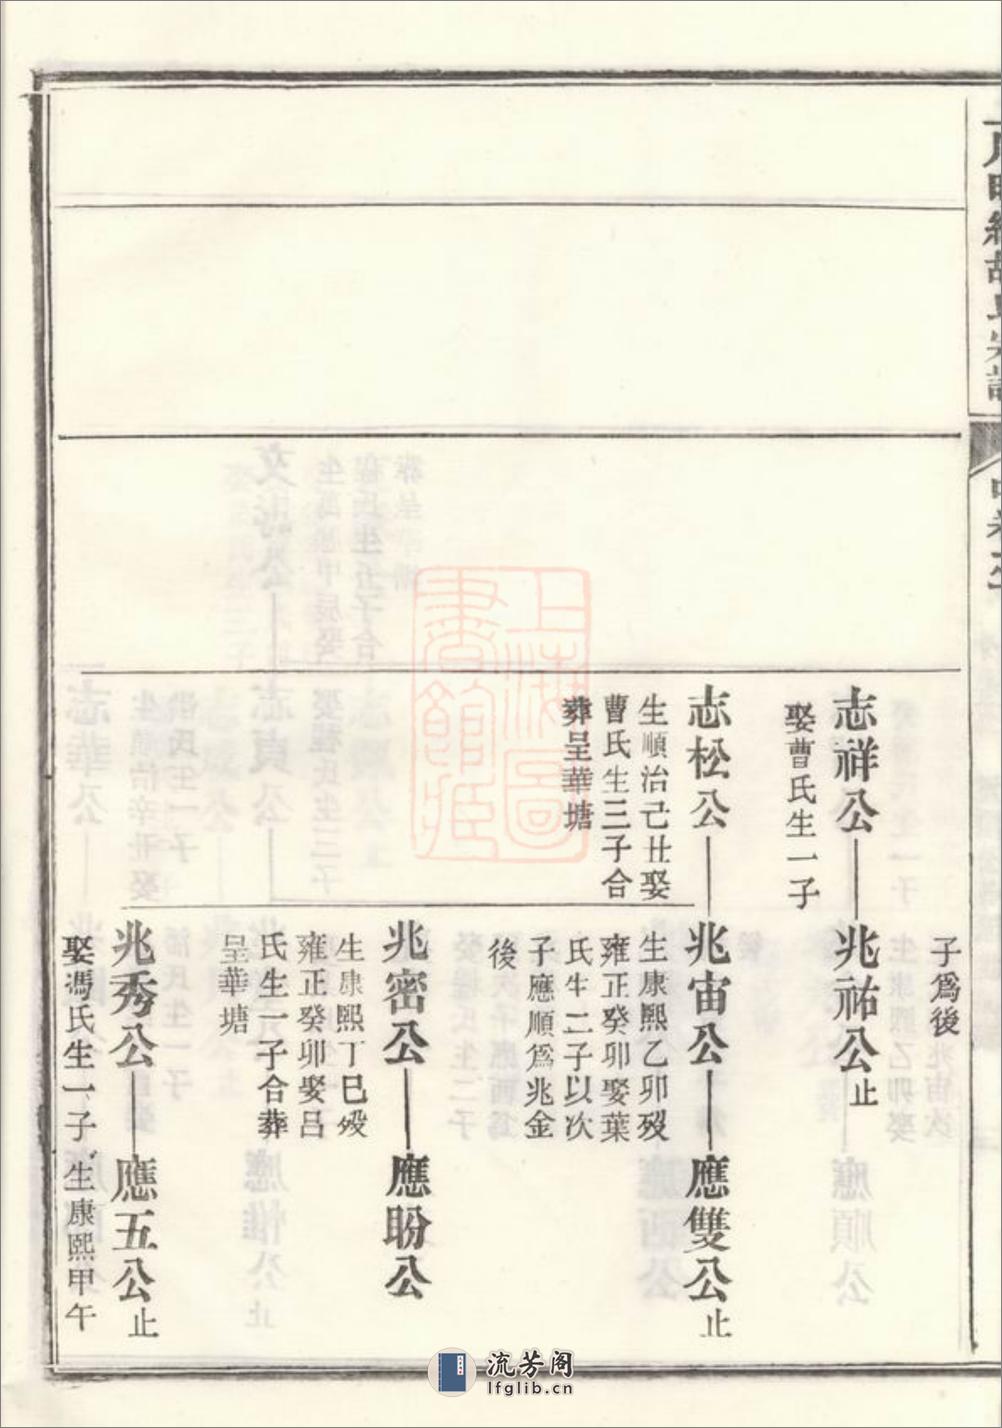 子為後
志祥公
娶曹氏生一子
兆祐公止
志松公
生順治己丑娶
曹氏生三子合
葬呈華塘
兆宙公
生康熙乙卯歿
雍正癸卯娶葉
氏生二子以次
子應順為兆金
後
應雙公止
兆密公
生康熙丁巳歿
雍正癸卯娶呂
氏生一子合葬
呈華塘
應盼公
兆秀公
娶馮氏生一子
應五公止
生康熙甲午
上海圖書館藏
流芳阁
lfglib.cn